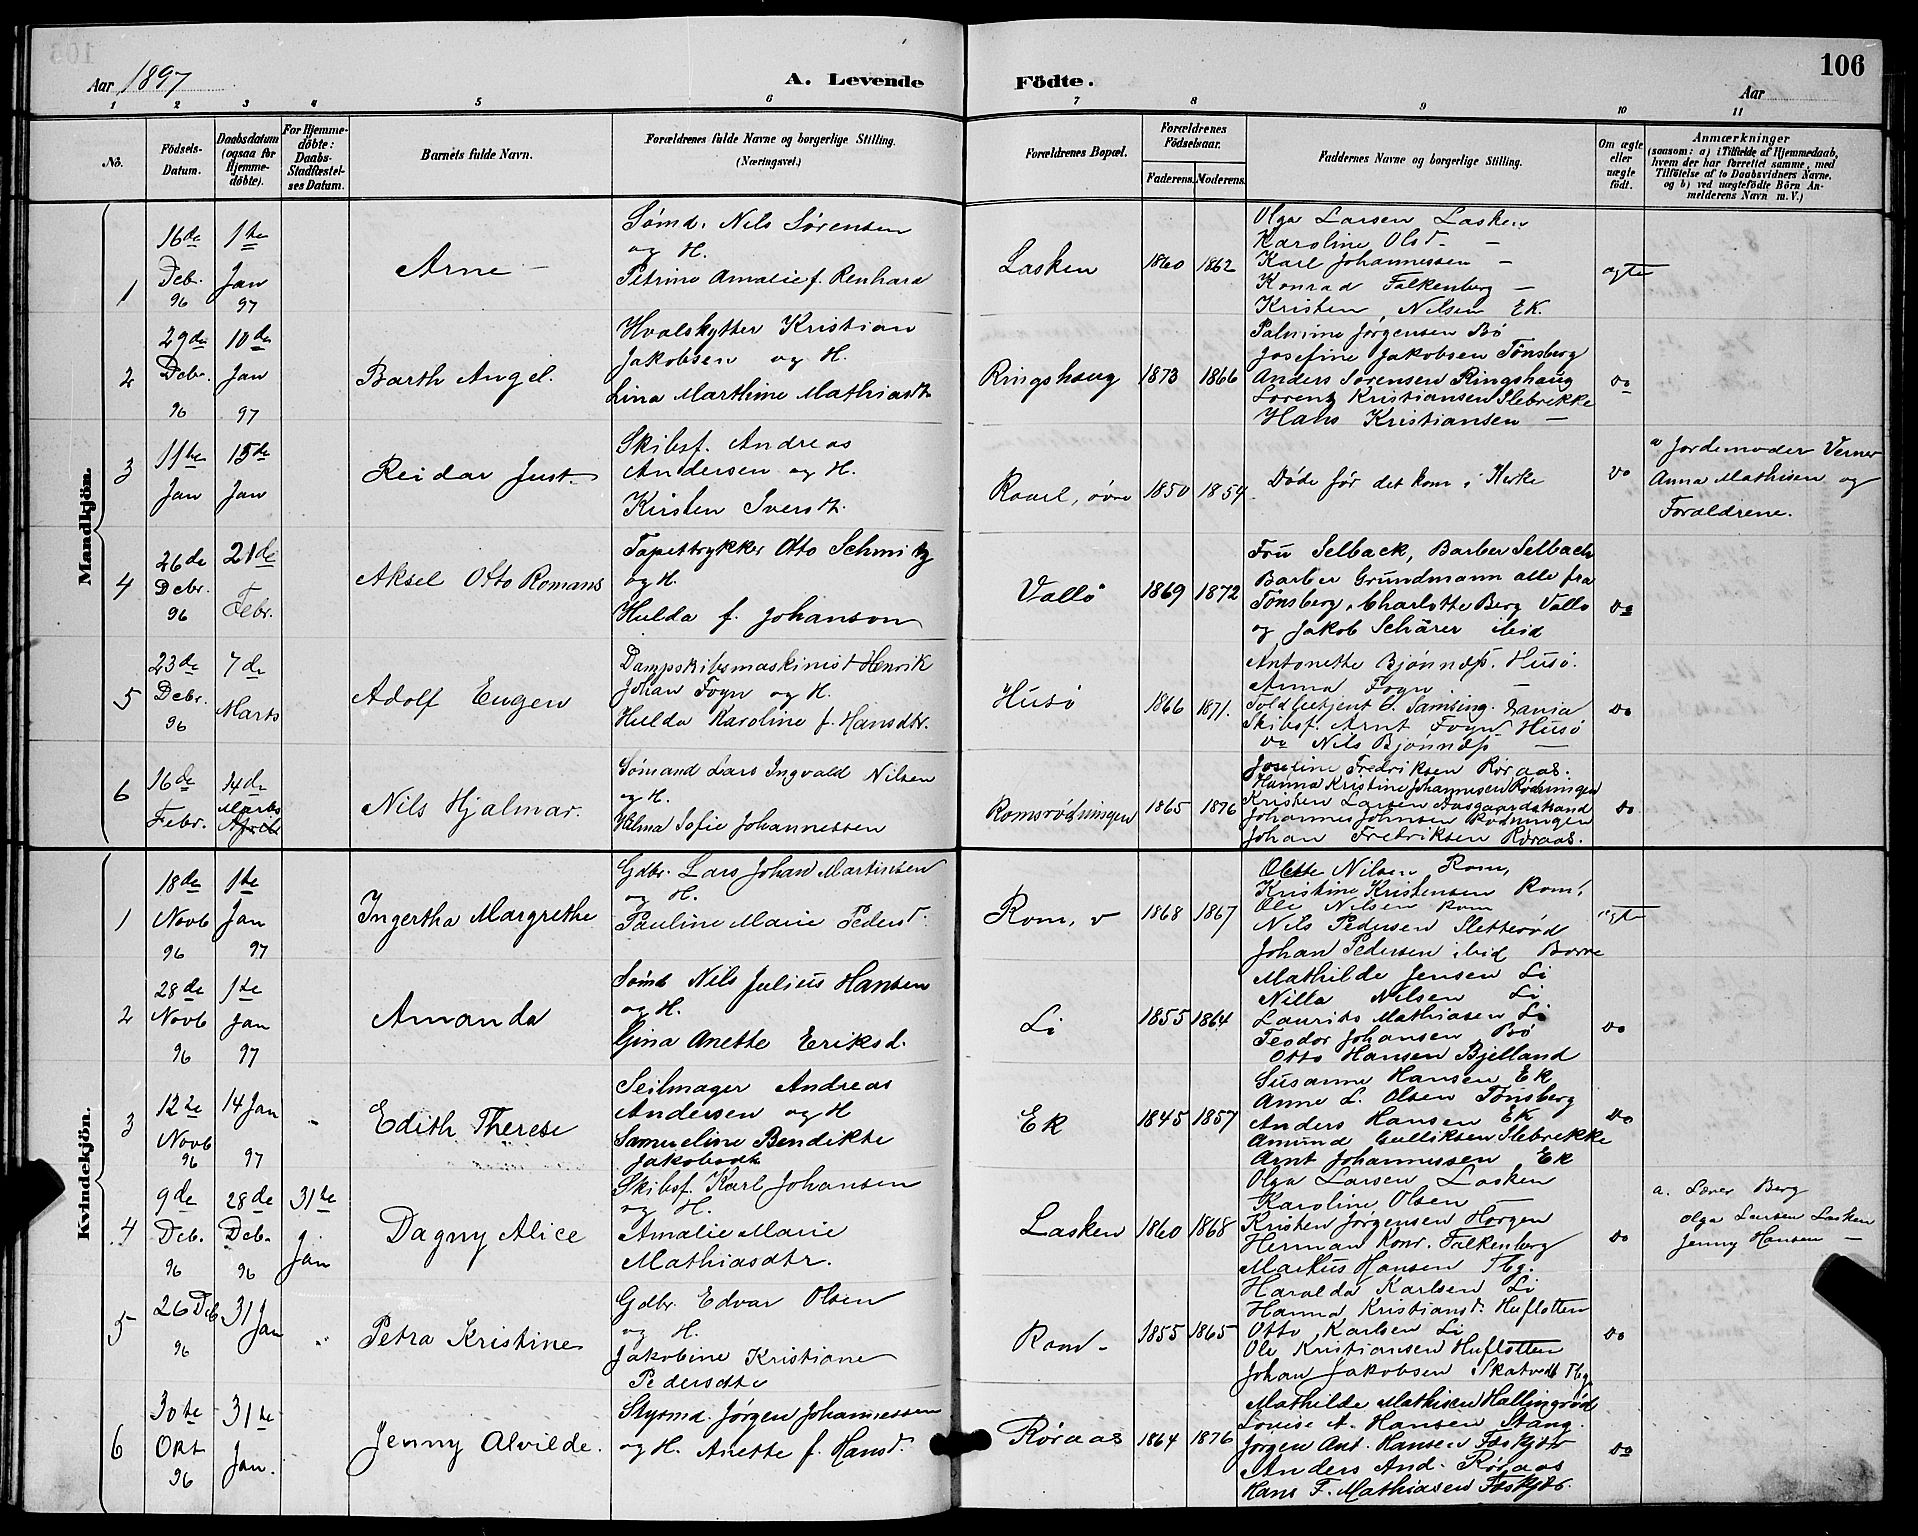 Aar 1897
A. Levende Födte.
Aar
106
1 2 3 4 5 6 7 8 9 10 11
No.
Födsels-
Datum.
Daabsdatum
(ogsaa for
Hjemme-
döbte).
For Hjemme-
döbte:
Daabs-
Stadfæstel-
ses Datum.
Barnets fulde Navn.
Forældrenes fulde Navne og borgerlige Stilling.
(Næringsvei.)
Forældrenes Bopæl.
Forældrenes
Födselsaar.
Faderens. Moderens.
Faddernes Navne og borgerlige Stilling.
Om ægte
eller
uægte
födt.
Anmærkninger
(saasom: a) i Tilfælde af Hjemmedaab,
hvem der har forrettet samme, med
Tilföielse af to Daabsvidners Navne,
og b) ved uægtefödte Börn An-
melderens Navn m. V.)
Mandkjön.
1
16de
Debr.
96
1te
Jan
97
Arne –
Sømd. Nils Sørensen
og H.
Petrine Amalie f. Renhard
Lasken
1860 1862
Olga Larsen Lasken
Karoline Olsd. –
Karl Johannessen –
Konrad Falkenberg –
Kristen Nilsen Ek.
ægte
2
29de
Debr.
96
10de
Jan
97
Barth Angel.
Hvalskytter Kristian
Jakobsen og H.
Lina Marthine Mathiasdt
Ringshaug
1873 1866
Palmine Jørgensen Bø
Josefine Jakobsen Tønsberg
Anders Sørensen Ringshaug
Lorentz Kristiansen Slebrekke
Hans Kristiansen –
do
3
11te
Jan
15de
Jan
Reidar Just.
Skibsf. Andreas
Andersen og H.
Kirsten Iversdt.
Rael, øvre
1850 1854.
Døde før det kom i Kirke
do
a Jordemoder Verner
Anna Mathisen og
Forældrene.
4
26de
Debr.
96
21de
Febr.
Aksel Otto Romans
Tapettrykker Otto Schmitz
og H.
Hulda f. Johanson
Vallø
1869 1872
Fru Selback, Barber Selbach
Barber Grundmann alle fra
Tønsberg, Charlotte Berg Vallø
og Jakob Schärer ibid
do
5
23de
Debr.
96
7de
Marts
Adolf Eugen
Dampskibsmaskinist Henrik
Johan Fogn og H.
Hulda Karoline f. Hansdtr.
Husø
1866 1871.
Antonette Bjønnæss. Husø.
Anna Fogn –
Toldbetjent C. Samsing.
Skibsf. Arnt Fogn Husø
do Nils Bjønnæss –
do
6
16de
Febr.
14de
Marts
April
Nils Hjalmar.
Sømand Lars Ingvald Nilsen
og H.
Hilma Sofie Johannessen
Romsrødningen
1865 1876
Josefine Fredriksen Røraas.
Hanna Kristine Johannessen Rødningen
Kristen Larsen Aasgaardstrand
Johannes Johnsen Rødningen
Johan Fredriksen Røraas.
do
Kvindekjön.
1
18de
Novb
96
1te
Jan
97
Ingertha Margrethe
Gdbr. Lars Johan Martinsen
og H.
Pauline Marie Pedersd.
Rom, v
1868 1867
Olette Nilsen Rom,
Kristine Kristensen Rom,
Ole Nilsen Rom
Nils Pedersen Sletterød
Johan Pedersen ibid Borre
ægte
2
28de
Novb
96
1te
Jan
97
Amanda
Sømd Nils Julius Hansen
og H.
Gina Anette Eriksd.
Li
1855 1864
Mathilde Jensen Li
Nilla Nilsen Li
Laurits Mathiasen Li
Teodor Johansen Bø
Otto Hansen Bjelland
do
3
12te
Novb
96
14 Jan
97
Edith Therese
Seilmager Andreas
Andersen og H
Samueline Bendikte
Jakobsdt
Ek
1845 1857
Susanne Hansen Ek
Anne L. Olsen Tønsberg
Anders Hansen Ek
Amund Gulliksen Slebrekke
Arnt Johannessen Ek
do
4
9de
Deb.
96
28de
Deb.
96
31te
Jan
Dagny Alice
Skibsf. Karl Johansen
og H.
Amalie Marie
Mathiasdtr.
Lasken
1860 1868
Olga Larsen Lasken
Karoline Olsen –
Kristen Jørgensen Horgen
Herman Konr. Falkenberg
Markus Hansen Tbg.
do
a. Lærer Berg
Olga Larsen Lasken
Jenny Hansen –
5
26 Deb
96
31
Jan
Petra Kristine
Gdbr. Edvar Olsen
og H.
Jakobine Kristiane
Pedersdtr
Rom –
1855 1865
Haralda Karlsen Li
Hanna Kristiansd. Huflotten
Otto Karlsen Li
Ole Kristiansen Huflotten
Johan Jakobsen Skatvedt Tbg.
do
6
30te
Okt
96
31te
Jan.
Jenny Alvilde.
Styrmd. Jørgen Johannessen
og H. Anette f. Hansd.
Røraas
1864 1876
Mathilde Mathisen Hallingrød
Louise A. Hansen Stang
Jørgen Ant. Hansen Feskjær
Anders And. Røraas
Hans F. Mathiasen Feskjær.
do